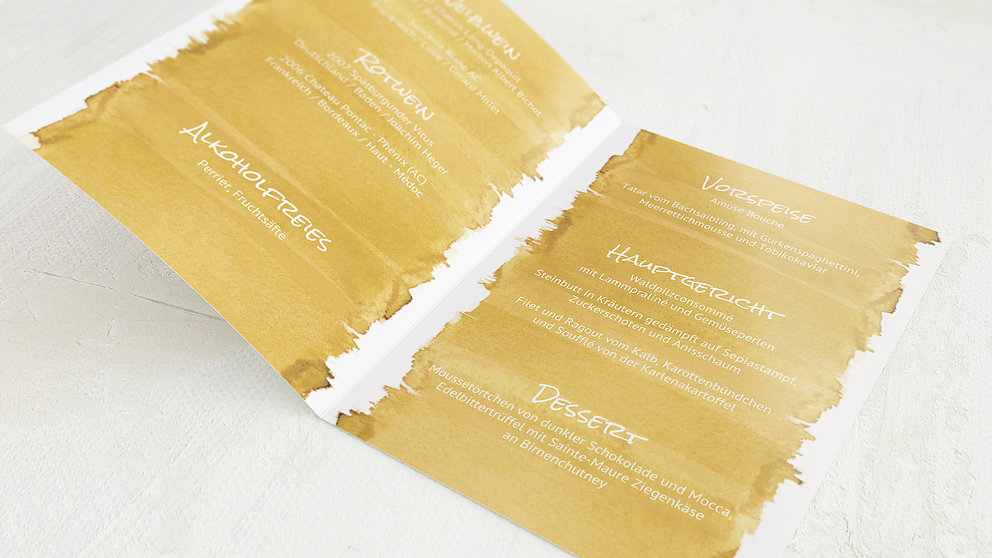 Weißwein
Long Depaquit
/ Maison Albert Bichot
Sancerre Blanc AC
/ Loire / Gérard Millet
Rotwein
2007 Spätburgunder Vitus
Deutschland / Baden / Joachim Heger
2006 Chateau Pontac - Phénix (AC)
Frankreich / Bordeaux / Haut - Médoc
Alkoholfreies
Perrier, Fruchtsäfte
Vorspeise
Amuse Bouche
Tatar vom Bachsaibling, mit Gurkenspaghettini,
Meerrettichmousse und Tobikokaviar
Hauptgericht
Waldpilzconsommé
mit Lammpraliné und Gemüseperlen
Steinbutt in Kräutern gedämpft auf Sepiastampf,
Zuckerschoten und Anisschaum
Filet und Ragout vom Kalb, Karottenbündchen
und Soufflé von der Karlenakartoffel
Dessert
Moussetörtchen von dunkler Schokolade und Mocca,
Edelbittertrüffel mit Sainte-Maure Ziegenkäse
an Birnenchutney